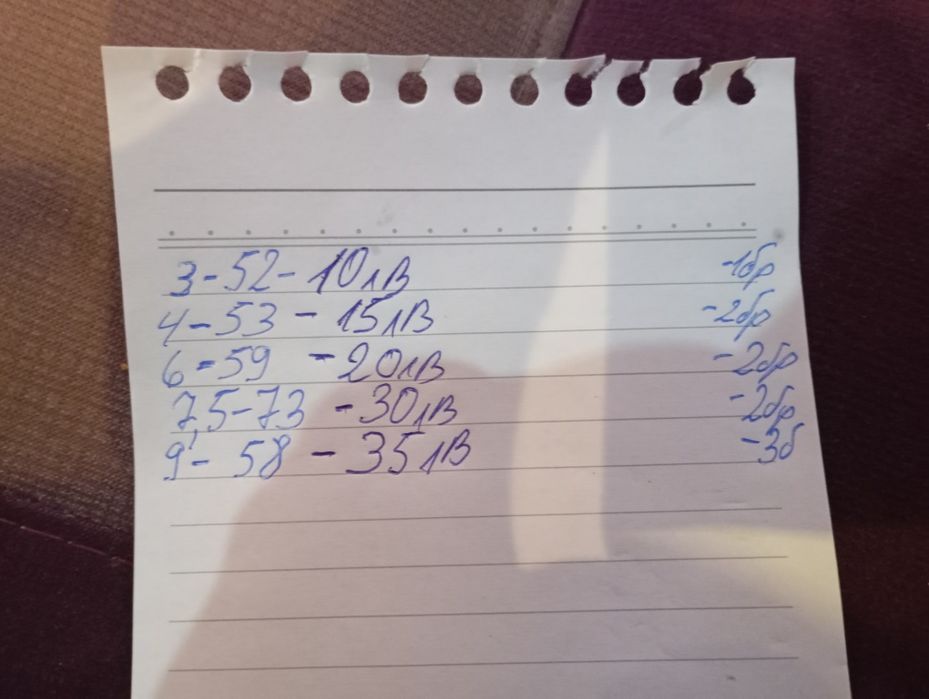 3-52-10лв -1бр
4-53-15лв -2бр
6-59 -20лв -2бр
7,5-73 -30лв -2бр
9-58-35лв -3б